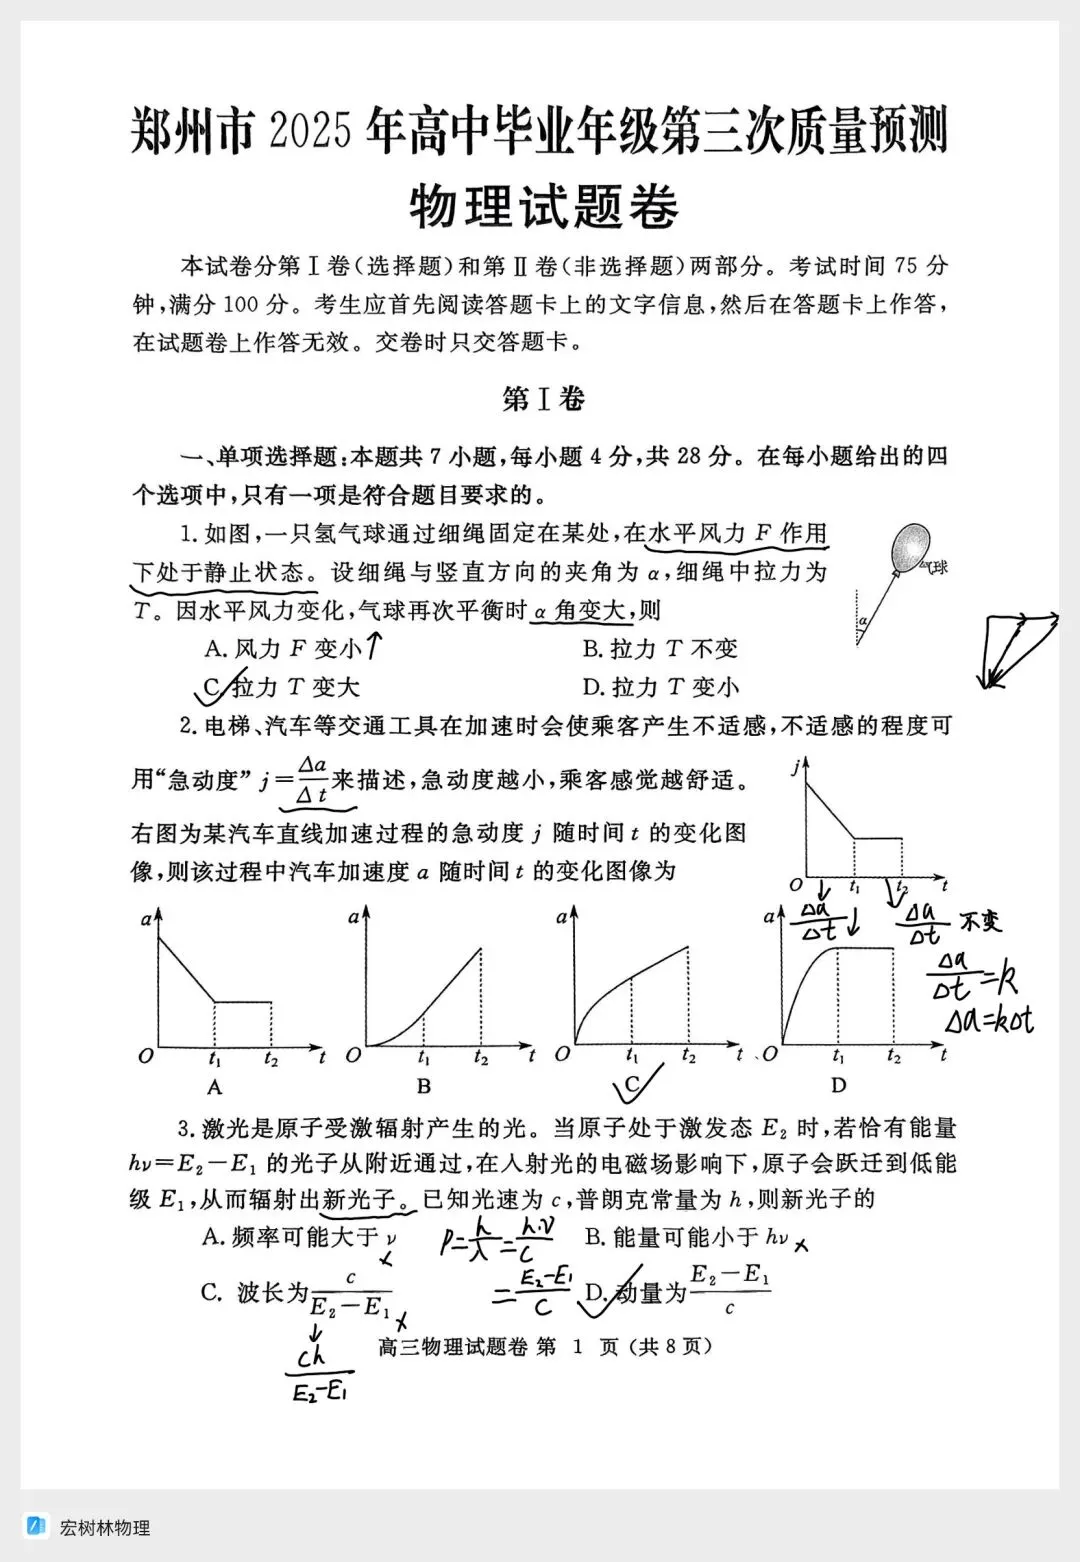 郑州市 2025 年高中毕业年级第三次质量预测
物理试题卷
本试卷分第 Ⅰ 卷(选择题)和第 Ⅱ 卷(非选择题)两部分。考试时间 75 分
钟,满分 100 分。考生应首先阅读答题卡上的文字信息,然后在答题卡上作答,
在试题卷上作答无效。交卷时只交答题卡。
第 Ⅰ 卷
一、单项选择题:本题共 7 小题,每小题 4 分,共 28 分。在每小题给出的四
个选项中,只有一项是符合题目要求的。
1. 如图,一只氢气球通过细绳固定在某处,在水平风力 F 作用
下处于静止状态。设细绳与竖直方向的夹角为 α,细绳中拉力为
T。因水平风力变化,气球再次平衡时 α 角变大,则
气球
α
A. 风力 F 变小↑ B. 拉力 T 不变
C. 拉力 T 变大 D. 拉力 T 变小
2. 电梯、汽车等交通工具在加速时会使乘客产生不适感,不适感的程度可
用“急动度” j=Δa/Δt 来描述,急动度越小,乘客感觉越舒适。
右图为某汽车直线加速过程的急动度 j 随时间 t 的变化图
像,则该过程中汽车加速度 a 随时间 t 的变化图像为
j
O t₁ t₂ t
Δa/Δt ↓ Δa/Δt 不变
Δa/Δt=k
Δa=kΔt
a a a a
O t₁ t₂ t O t₁ t₂ t O t₁ t₂ t O t₁ t₂ t
A B C D
3. 激光是原子受激辐射产生的光。当原子处于激发态 E₂ 时,若恰有能量
hν=E₂-E₁ 的光子从附近通过,在入射光的电磁场影响下,原子会跃迁到低能
级 E₁,从而辐射出新光子。已知光速为 c,普朗克常量为 h,则新光子的
A. 频率可能大于 ν × P=h/λ=h·ν/c B. 能量可能小于 hν ×
C. 波长为 c/(E₂-E₁) × =(E₂-E₁)/c D. 动量为 (E₂-E₁)/c
ch/(E₂-E₁)
高三物理试题卷 第 1 页 (共 8 页)
宏树林物理